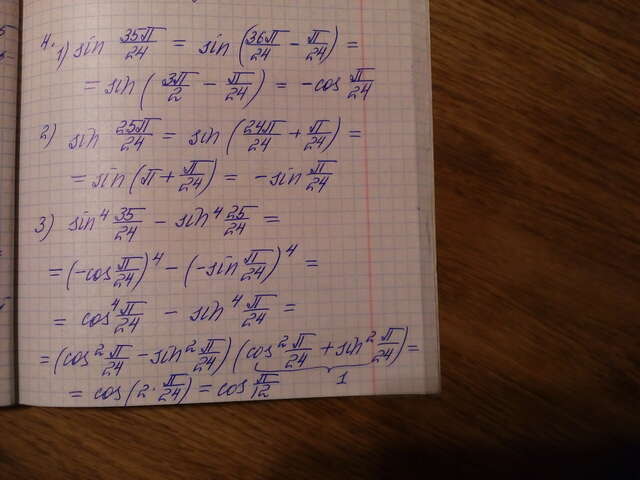 4. 1) sin 35π/24 = sin (36π/24 - π/24) =
= sin (3π/2 - π/24) = -cos π/24
2) sin 25π/24 = sin (24π/24 + π/24) =
= sin (π + π/24) = -sin π/24
3) sin⁴ 35/24 - sin⁴ 25/24 =
= (-cos π/24)⁴ - (-sin π/24)⁴ =
= cos⁴ π/24 - sin⁴ π/24 =
= (cos² π/24 - sin² π/24) (cos² π/24 + sin² π/24) =
1
= cos (2 · π/24) = cos π/12